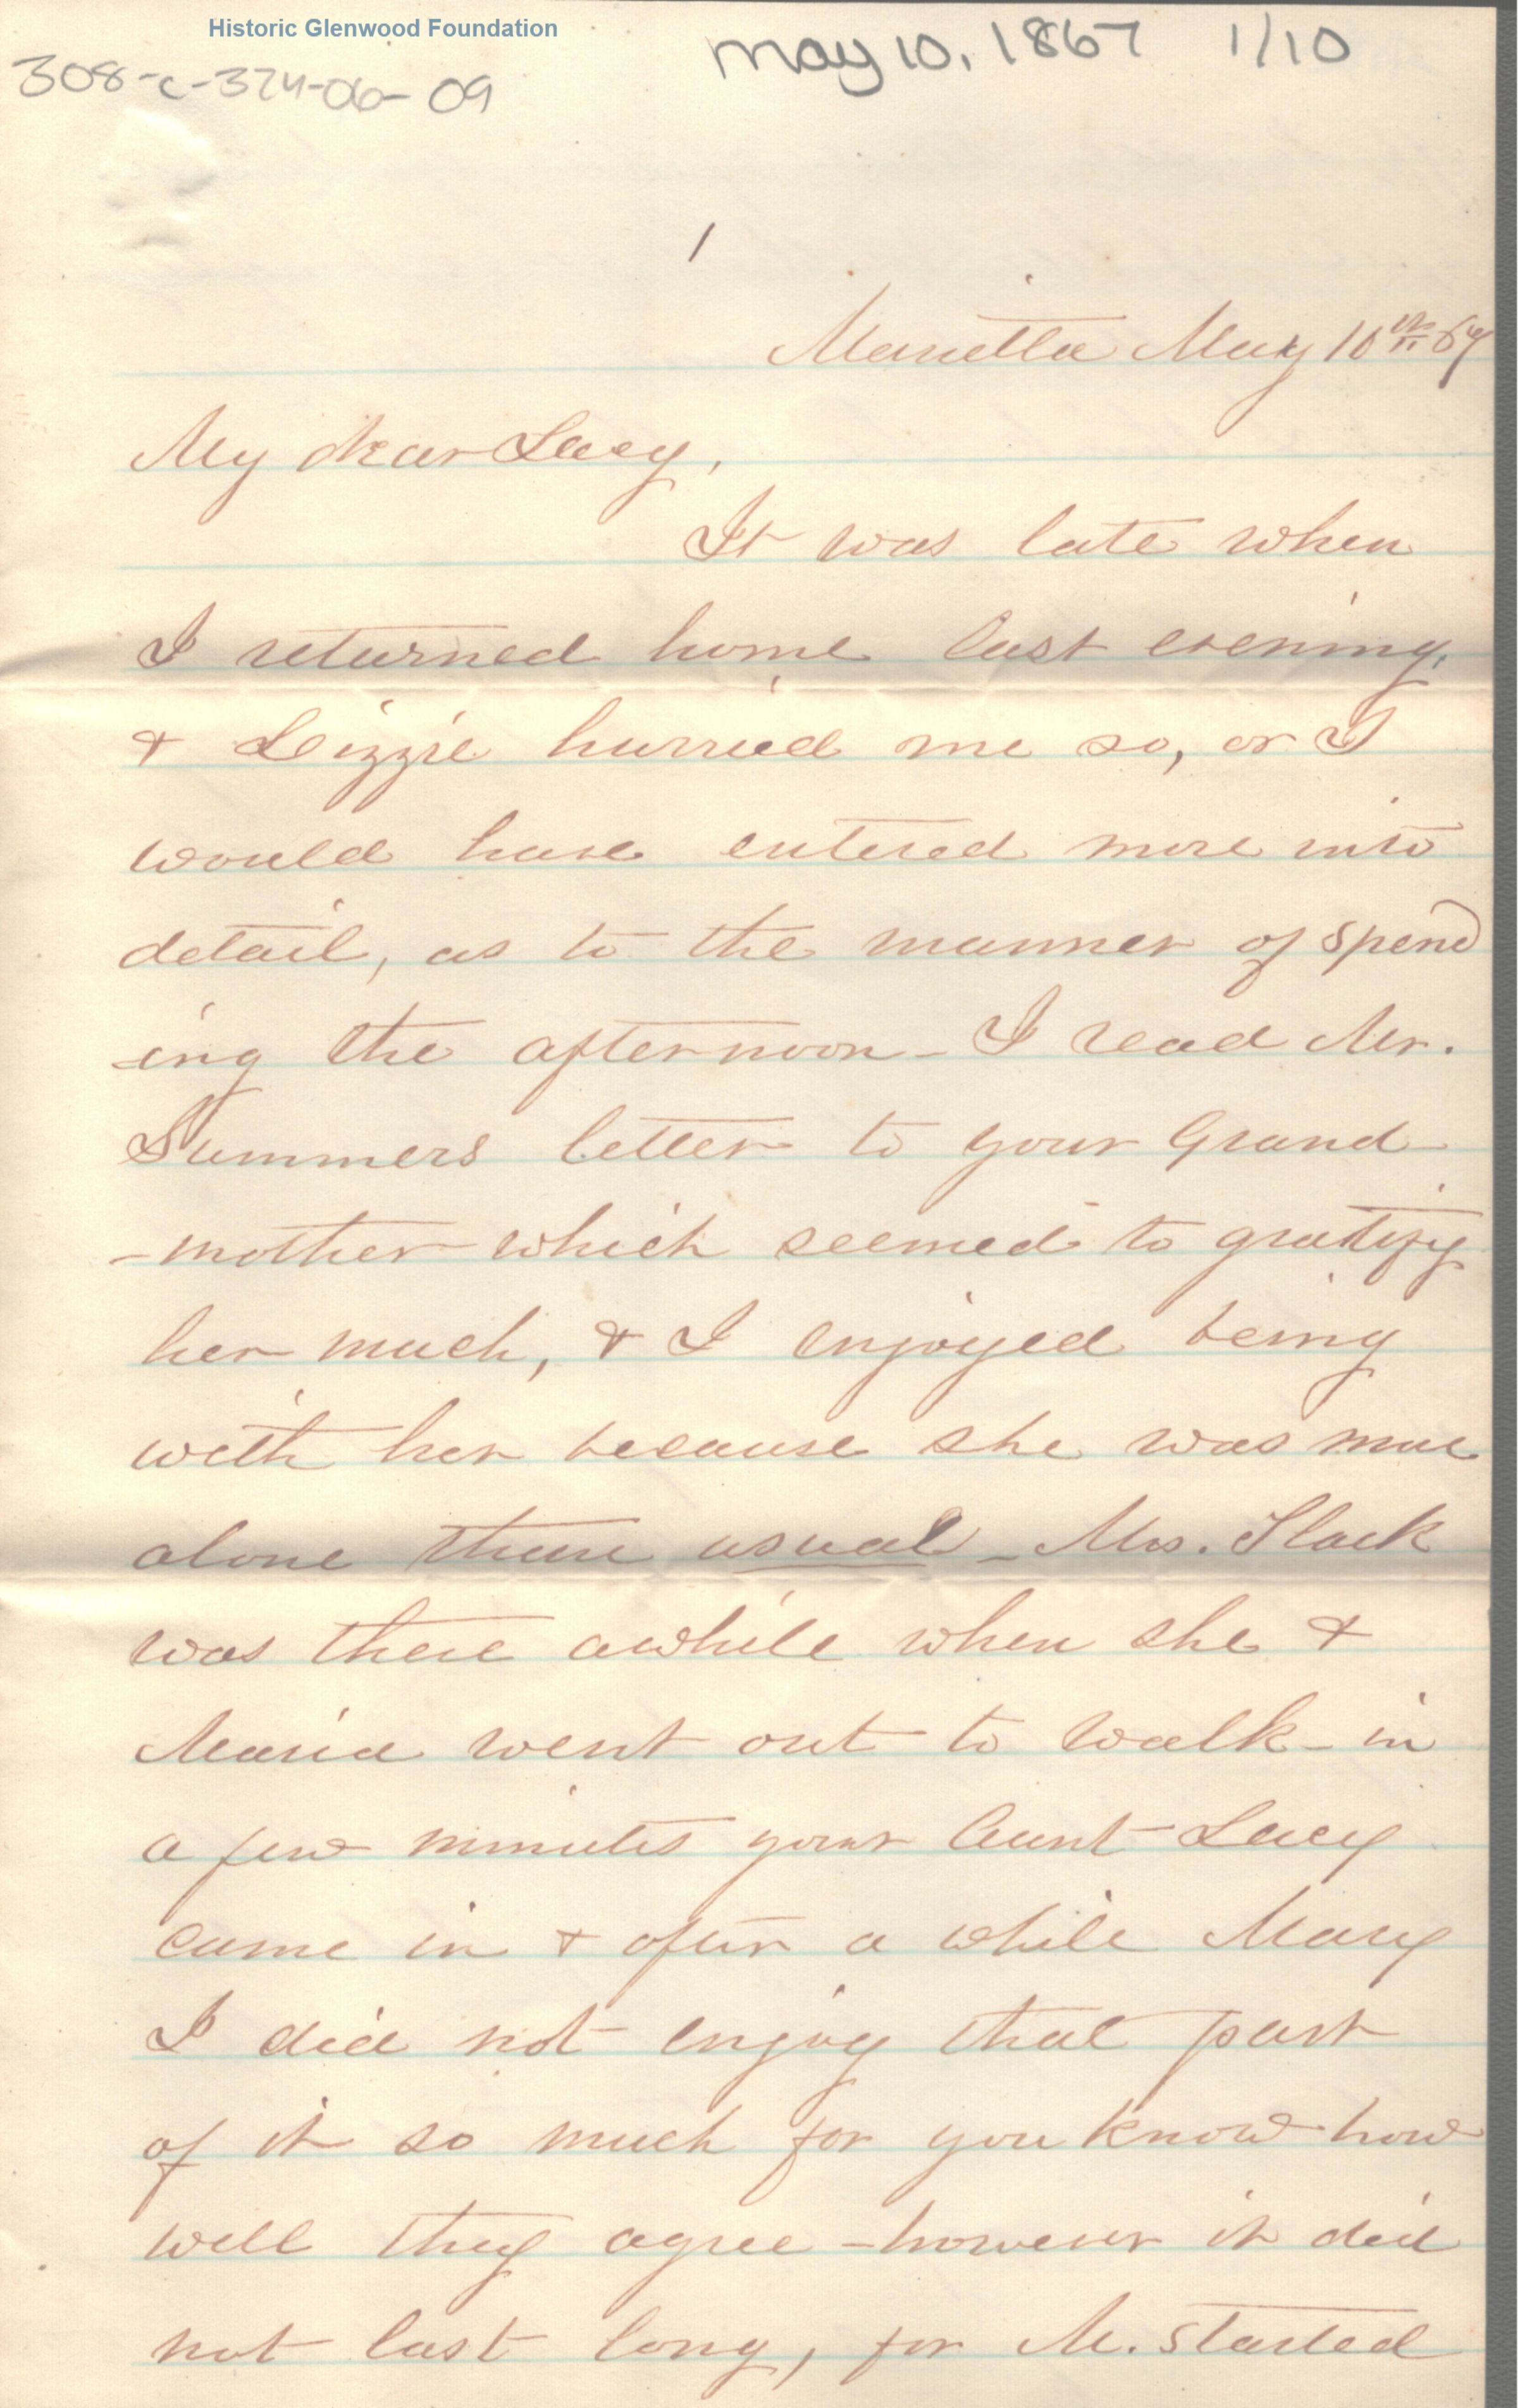 Historic Glenwood Foundation
May 10, 1867 1/10
308-c-374-06-09
1
Marietta May 10th 67
My dear Lucy,
It was late when
I returned home last evening,
& Lizzie hurried me so, or I
would have entered more into
detail, as to the manner of spend
-ing the afternoon - I read Mr.
Summers letter to your Grand
-mother which seemed to gratify
her much, & I enjoyed being
with her because she was more
alone than usual - Mrs. Slack
was there awhile when she &
Maria went out to walk - in
a few minutes your Aunt Lucy
came in & after a while Mary
I did not enjoy that part
of it so much for you know how
well they agree - however it did
not last long, for M. started